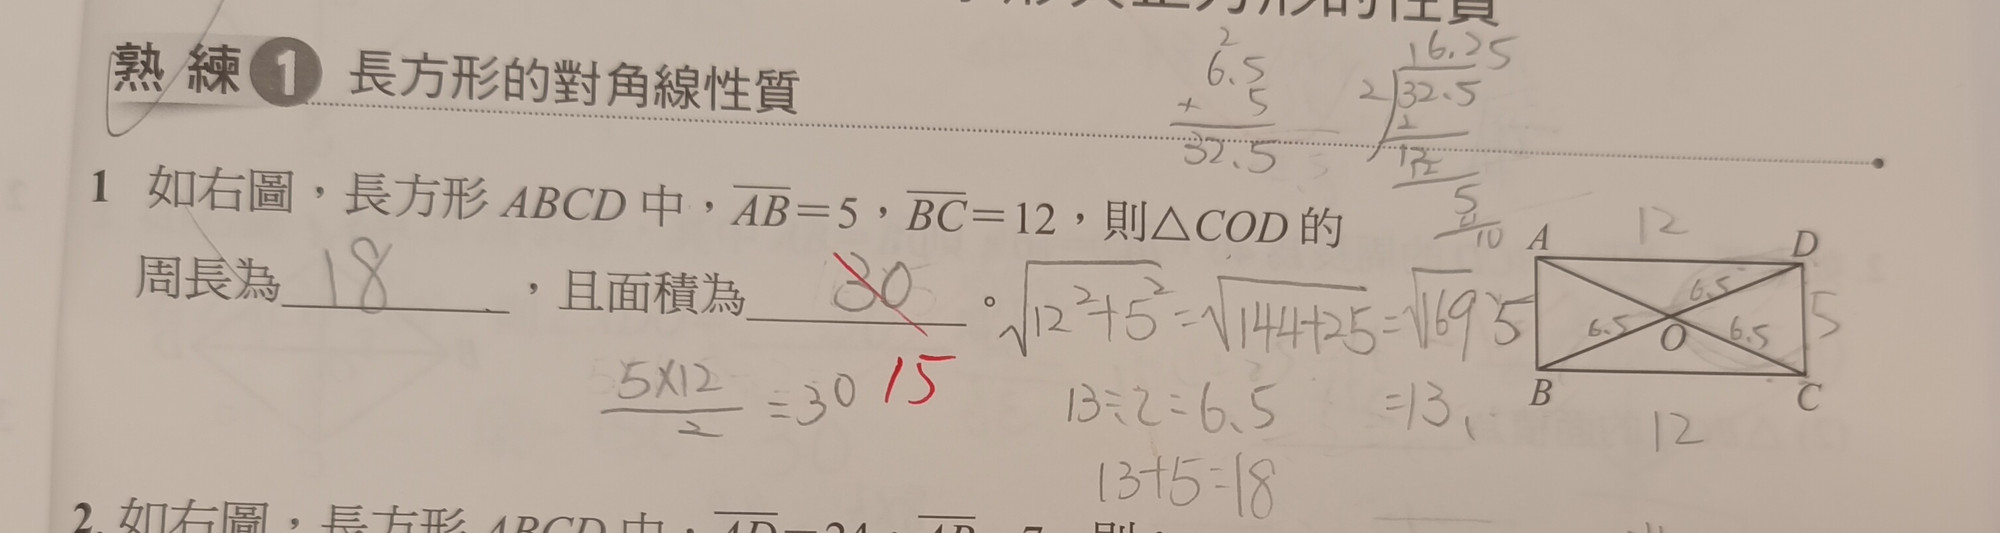 形的性質
熟練 1 長方形的對角線性質
2
6.5
+ 5
32.5
16.25
2 32.5
2
12
12
5
4
10
1 如右圖，長方形 ABCD 中，AB=5，BC=12，則△COD 的
周長為 18 ，且面積為 30 。
15
5×12
2
=30
√12²+5² = √144+25 = √169
=13
13÷2=6.5
13+5=18
A 12 D
5 6.5 5
6.5 O 6.5
B 12 C
2. 如右圖，長方形 ABCD 中，AD=24，AB=7，則：